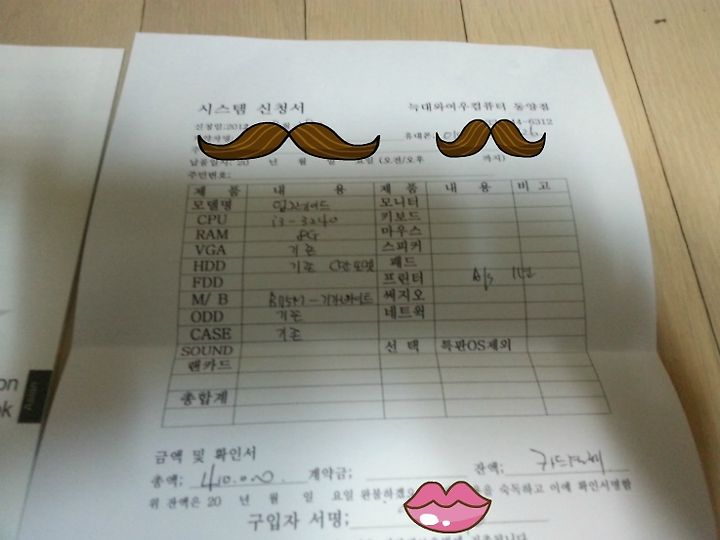 시스템 신청서 늑대와여우컴퓨터 동양점
신청일:2012 44-6312
휴대폰:
납품일자: 20 년 월 일 요일 (오전/오후 까지)
주민번호:
제 품 내 용 제 품 내 용 비 고
모델명 업그레이드 모니터
CPU i3-3240 키보드
RAM 8G 마우스
VGA 기존 스피커
HDD 기존 C만 포맷 패드
FDD 프린터 A/S 1년
M/ B B75M-기가바이트 씨지오
ODD 기존 네트웍
CASE 기존
SOUND 선 택 특판OS제외
랜카드
총합계
금액 및 확인서
총액; 410.000 계약금; 잔액;
위 잔액은 20 년 월 일 요일 완불하겠 을 숙독하고 이에 확인서명함
구입자 서명;
on
k
Asian